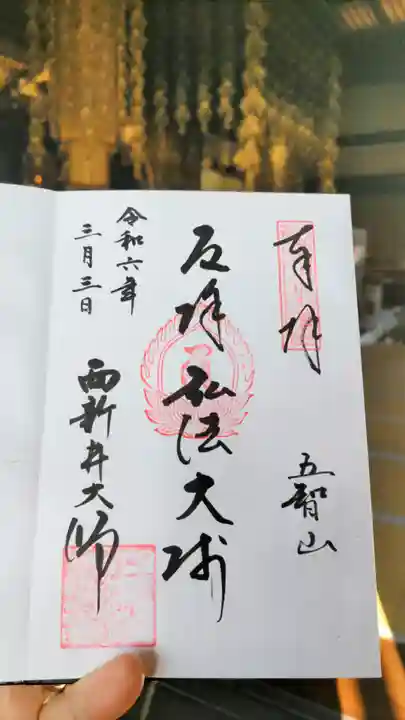 奉拝
五智山
厄除弘法大師
西新井大師
令和六年
三月三日